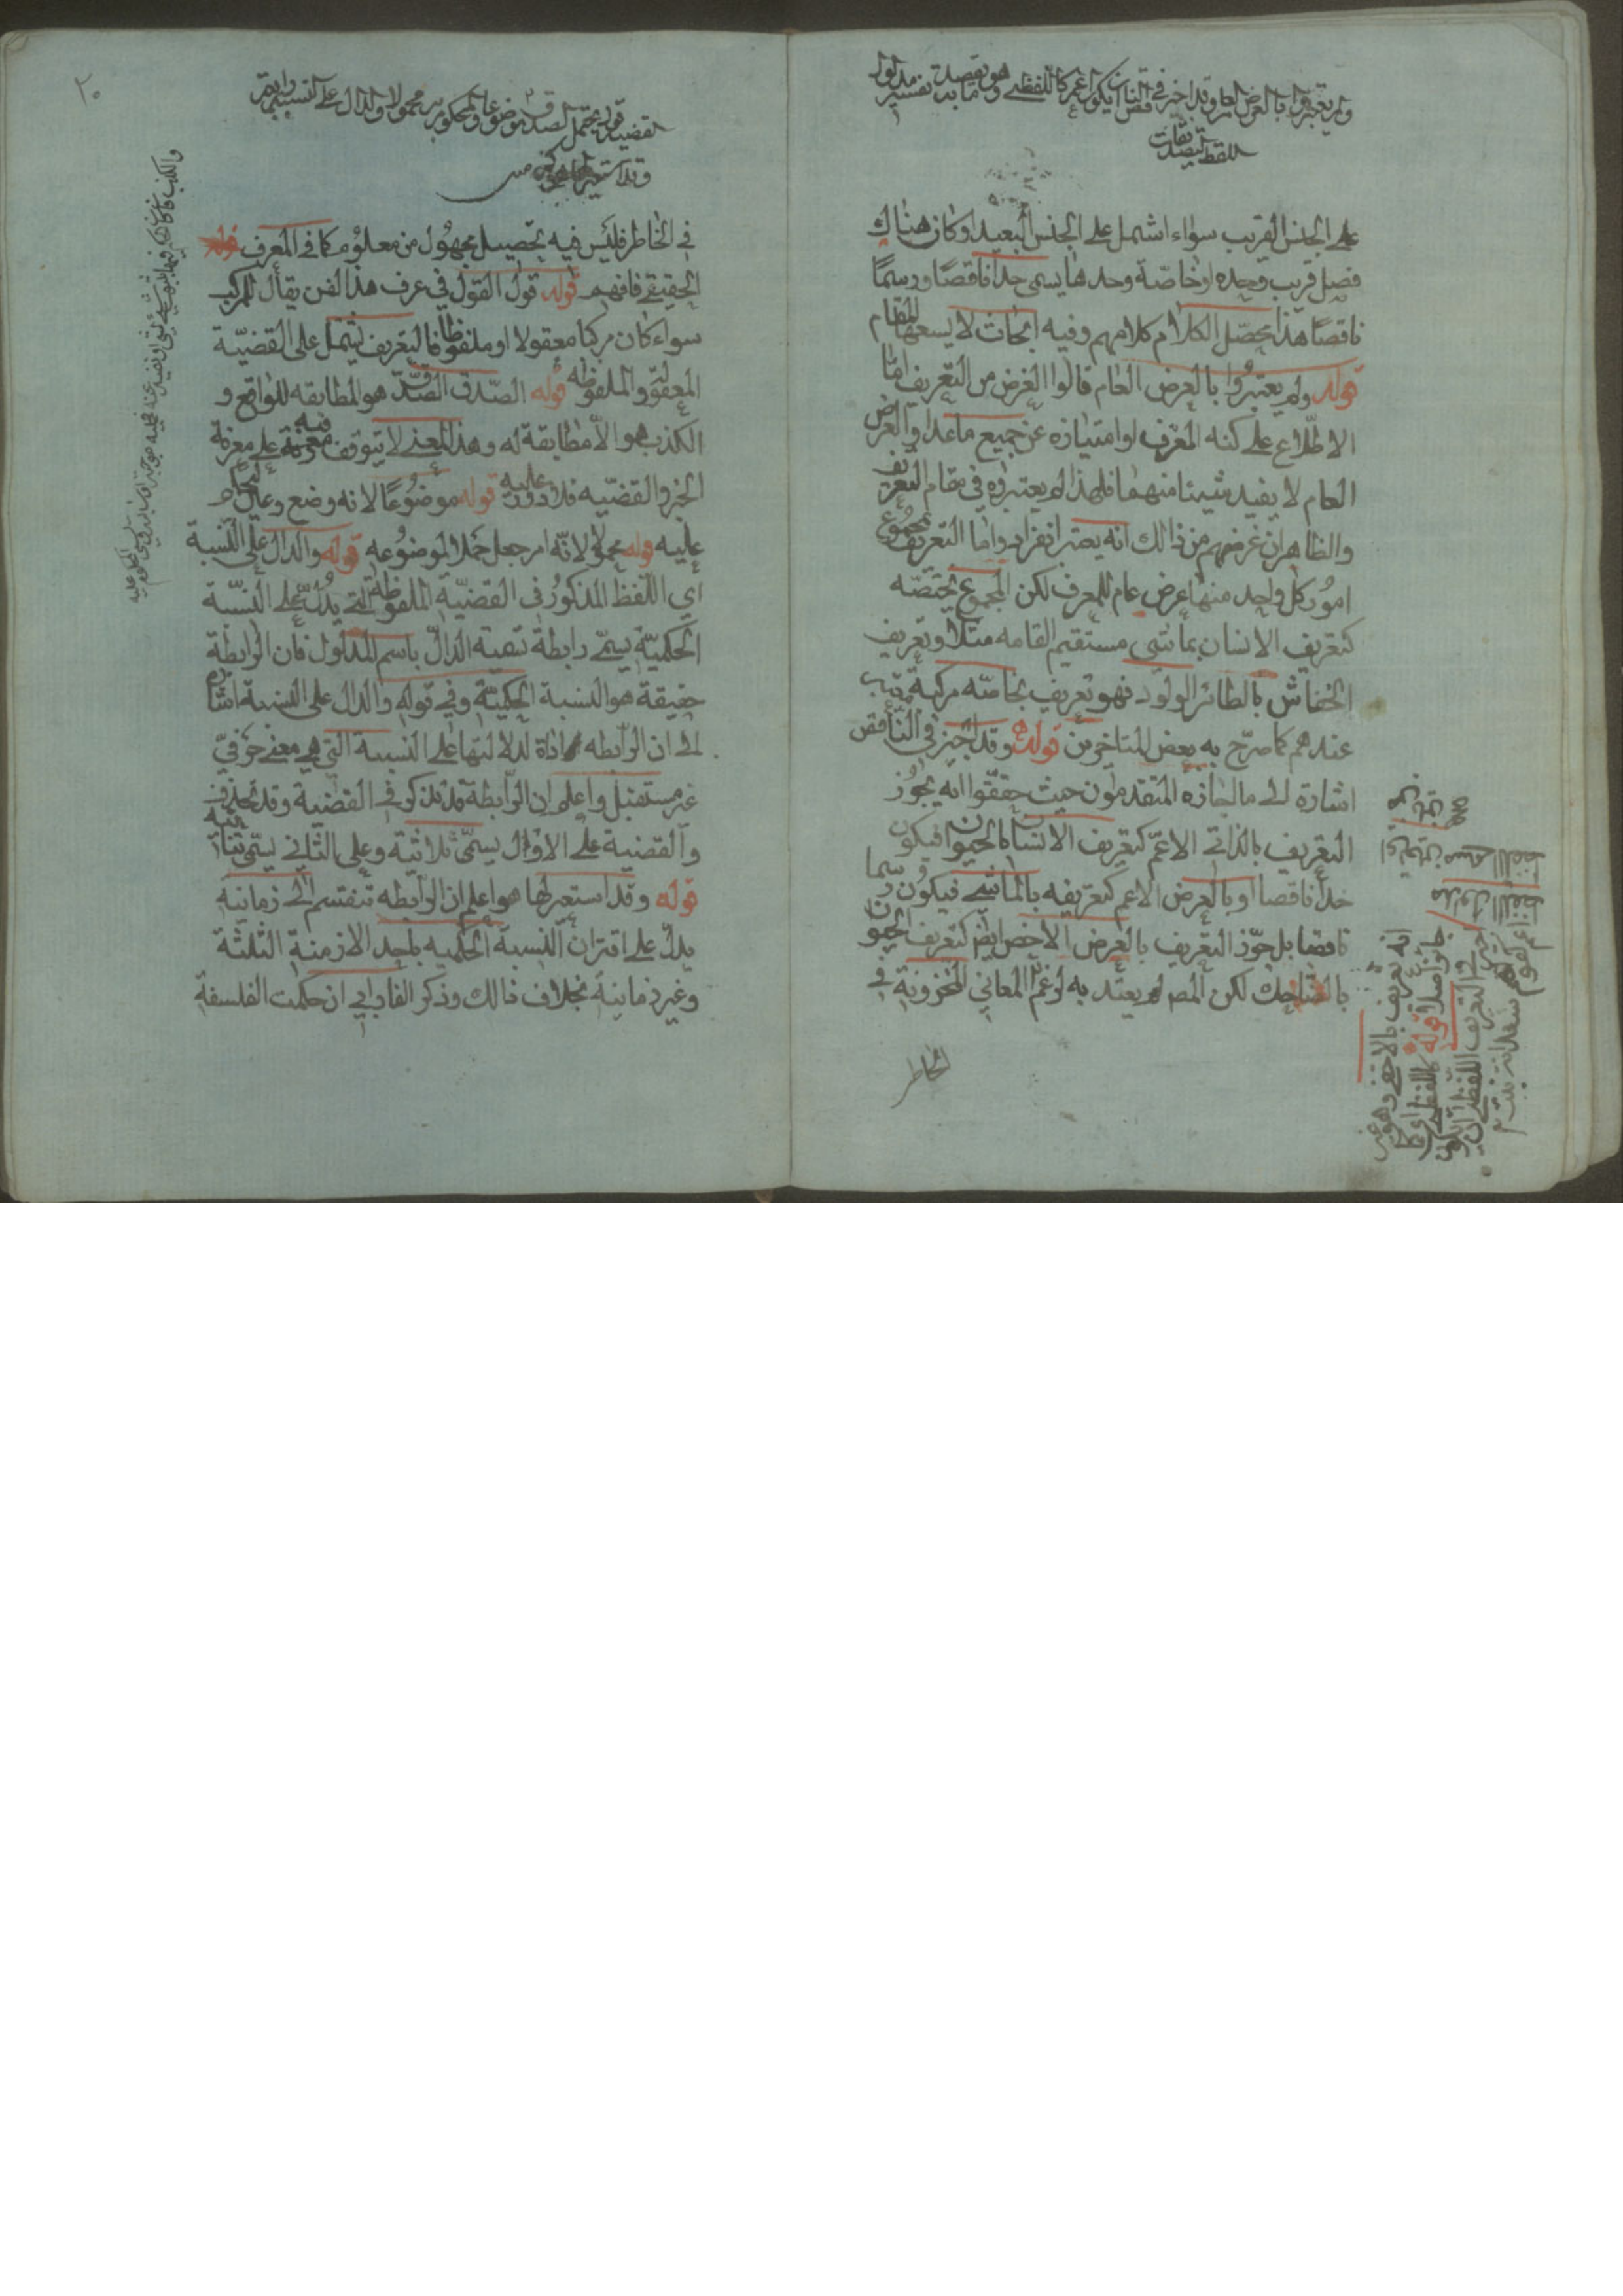 ولم يعتبروا بالعرض العام وقد اجيز في الناقص ان يكون اعم كاللفظي وهو ما يقصد به تفسير مدلول
اللفظ التصديقات
على الجنس القريب سواء اشتمل على الجنس البعيد او كان هناك
فصل قريب وحده او خاصّة وحدها يسمى حدا ناقصًا ورسمًا
ناقصًا هذا محصّل الكلام كلامهم وفيه ابحاث لا يسعها المقام
قوله ولم يعتبروا بالعرض العام قالوا الغرض من التعريف امّا
الاطّلاع على كنه المعرّف او امتيازه عن جميع ما عداه والعرض
العام لا يفيد شيئا منهما فلهذا لم يعتبروه في مقام التعريف
والظاهر ان غرضهم من ذالك انه يعتبر انفرادا واما التعريف بمجموع
امور كل واحد منها عرض عام للمعرف لكن المجموع يخصّه
كتعريف الانسان بماشي مستقيم القامه مثلا وتعريف
الخفاش بالطائر الولود فهو تعريف بخاصّه مركبة معتبر
عندهم كما صرّح به بعض المتاخرين قوله وقد اجيز في الناقص
اشارة الى ما اجازه المتقدمون حيث حققوا انه يجوز
التعريف بالذاتي الاعمّ كتعريف الانسان بالحيوان فيكون
حدا ناقصا او بالعرض الاعم كتعريفه بالماشي فيكون رسما
ناقصا بل جوّز التعريف بالعرض الاخص ايض كتعريف الحيوان
بالضاحك لكن المص لم يعتد به لزعم
الخاطر
انه تعريف بالاخفى وهو غير
جائز اصلا قوله كاللفظي اي كما
اجيز في التعريف اللفظي ان يكون
اعم كقولهم سعدانة نبت
٢٠
القضية قول يحتمل الصدق
موضوعا والمحكوم به محمولا والدال على النسبة رابطة
وقد استعير لها هو
في الخاطر فليس فيه تحصيل مجهول من معلوم كما في المعرف
الحقيقي فافهم قوله قول القول في عرف هذا الفن يقال للمركب
سواء كان مركبا معقولا او ملفوظا فالتعريف يشمل على القضيّة
المعقولة والملفوظه قوله الصّدق الصّدق هو المطابقه للواقع و
الكذب هو اللامطابقة له وهذا المعنى لا يتوقف معرفته على معرفة
الخبر والقضيّه فلا دور قوله موضوعًا لانه وضع وعيّن ليحكم
عليه قوله محمولا لانّه امر جعل حملا لموضوعه قوله والدال على النسبة
اي اللّفظ المذكور في القضيّة الملفوظة التي يدلّ على النسبّة
الحكميّة يسمّى رابطة تسمية الدالّ باسم المدلول فان الرابطة
حقيقة هو النسبة الحكميّة وفي قوله والدال على النسبة اشارة
الى ان الرابطه اداة لدلالتها على النسبة التي هي معنى حرفيّ
غير مستقبل واعلم ان الرّابطة قد تذكر في القضية وقد تحذف
والقضية على الاوّل يسمّى ثلاثية وعلى الثاني يسمّى ثنائيه
قوله وقد استعير لها هو اعلم ان الرابطه تنقسم الى زمانيه
يدلّ على اقتران النسبة الحكميه باحد الازمنة الثلثة
وغير زمانية بخلاف ذالك وذكر الفارابي ان حكمت الفلسفة